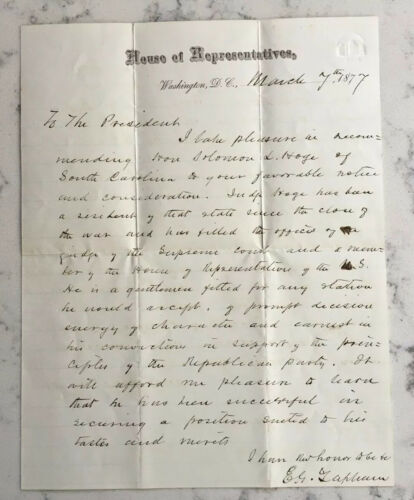 House of Representatives,
Washington, D.C., March 7th, 1877
To The President
I take pleasure in recom-
mending Hon Solomon L. Hoge of
South Carolina to your favorable notice
and consideration. Judge Hoge has been
a resident of that state since the close of
the war and has filled the offices of
judge of the Supreme Court and a mem-
ber of the House of Representatives of the U.S.
He is a gentleman fitted for any station
he would accept, of prompt decision
energy of character and earnest in
his convictions in support of the prin-
ciples of the Republican party. It
will afford me pleasure to learn
that he has been successful in
securing a position suited to his
tastes and merits
I have the honor to be &c
E.G. Lapham